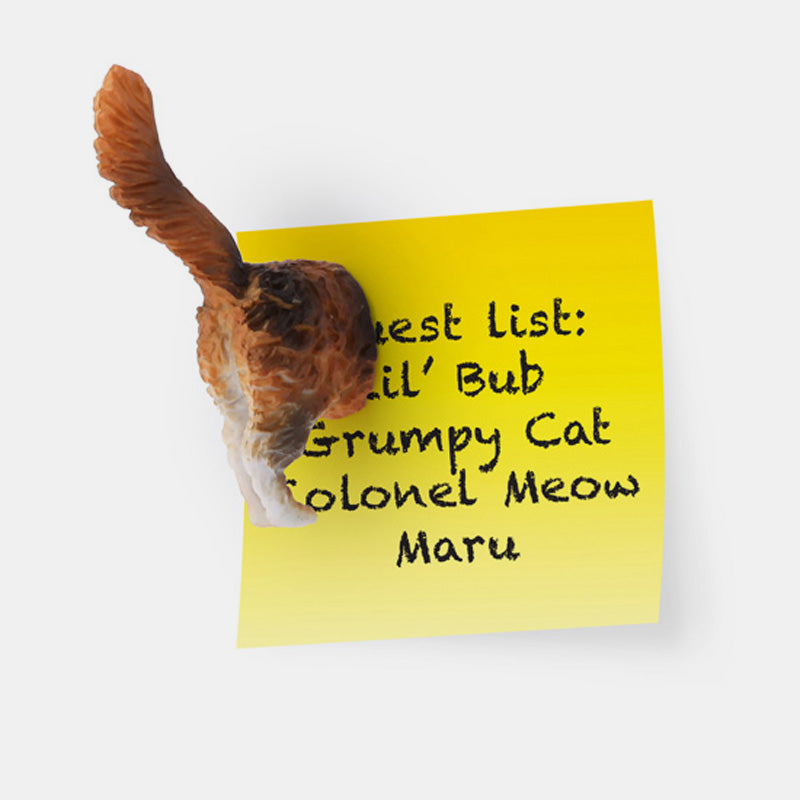 uest list:
Lil' Bub
Grumpy Cat
Colonel Meow
Maru